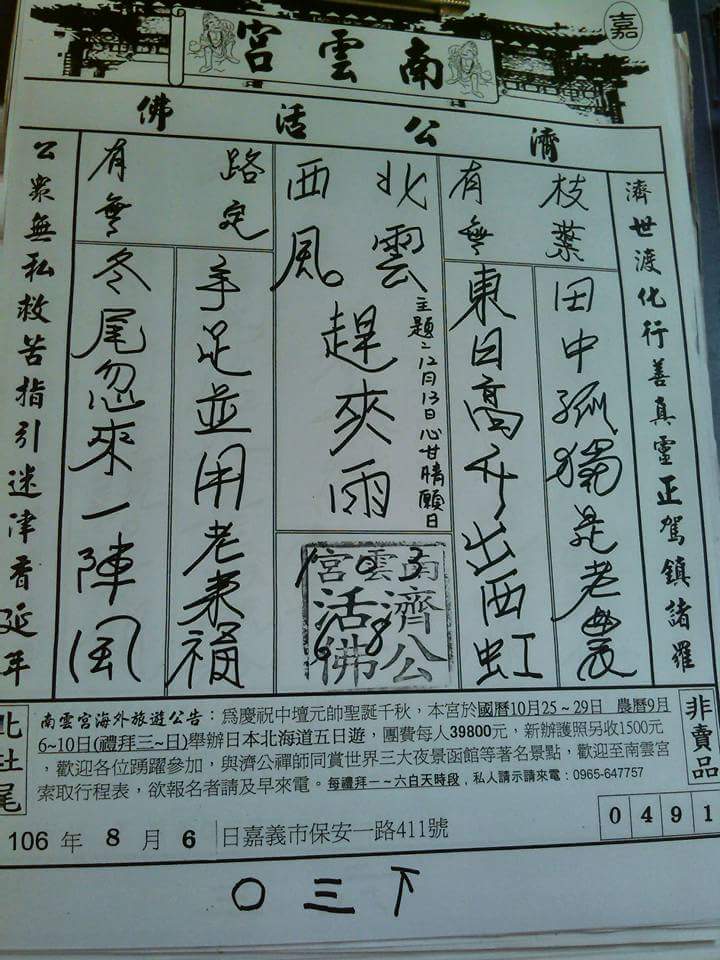 嘉
南雲宮
濟公活佛
濟世渡化行善真靈正駕鎮諸羅
枝葉
有無
田中孤獨是老農
東日高升出西虹
北雲
西風。
趕夾雨
主題:12月13日心甘情願日
路定
有無
手足並用老來福
冬尾忽來一陣風
公眾無私救苦指引迷津香延年
南雲宮
濟公
活佛
103
68
北社尾
南雲宮海外旅遊公告：為慶祝中壇元帥聖誕千秋，本宮於國曆10月25～29日 農曆9月
6~10日(禮拜三~日)舉辦日本北海道五日遊，團費每人39800元，新辦護照另收1500元
，歡迎各位踴躍參加，與濟公禪師同賞世界三大夜景函館等著名景點，歡迎至南雲宮
索取行程表，欲報名者請及早來電。每禮拜一～六白天時段，私人請示請來電：0965-647757
非賣品
106 年 8 月 6 日嘉義市保安一路411號
0491
〇三下